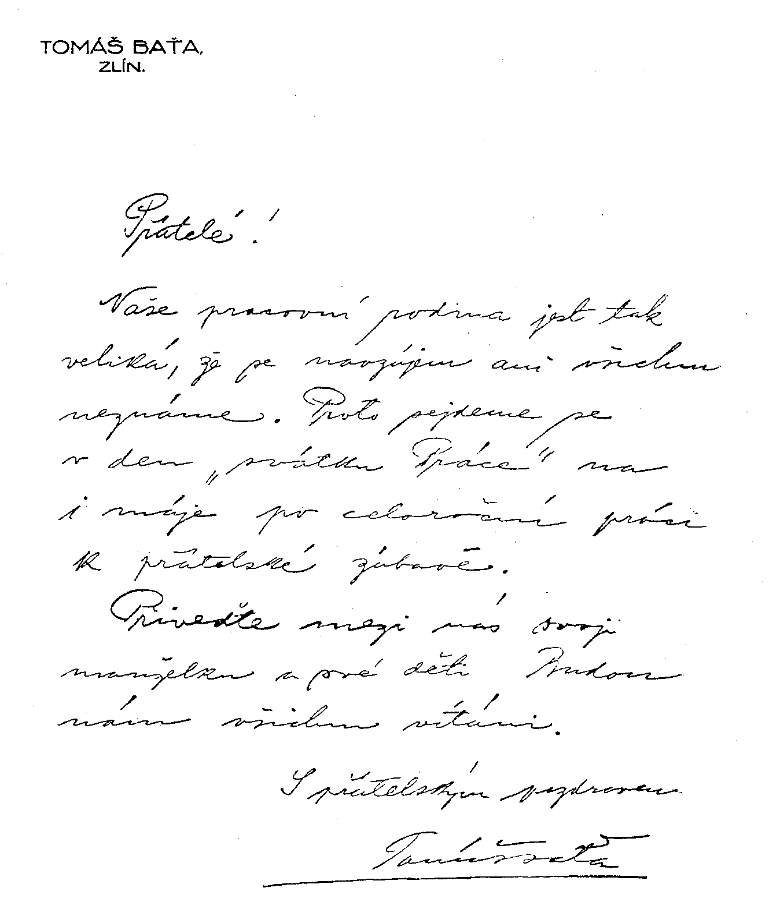 TOMÁŠ BAŤA,
ZLÍN.
Přátelé!
Naše pracovní rodina jest tak
veliká, že se navzájem ani všichni
neznáme. Proto sejdeme se
v den „svátku Práce“ na
1 máje po celoroční práci
k přátelské zábavě.
Přiveďte mezi nás svoji
manželku a své děti Budou
nám všichni vítáni.
S přátelským pozdravem
Tomáš Baťa